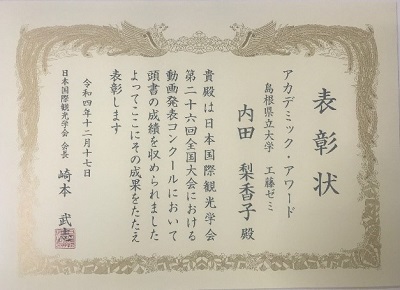 表彰状
アカデミック・アワード
島根県立大学 工藤ゼミ
内田 梨香子 殿
貴殿は日本国際観光学会
第二十六回全国大会における
動画発表コンクールにおいて
頭書の成績を収められました
よってここにその成果をたたえ
表彰します
令和四年十二月十七日
日本国際観光学会 会長 崎本 武志